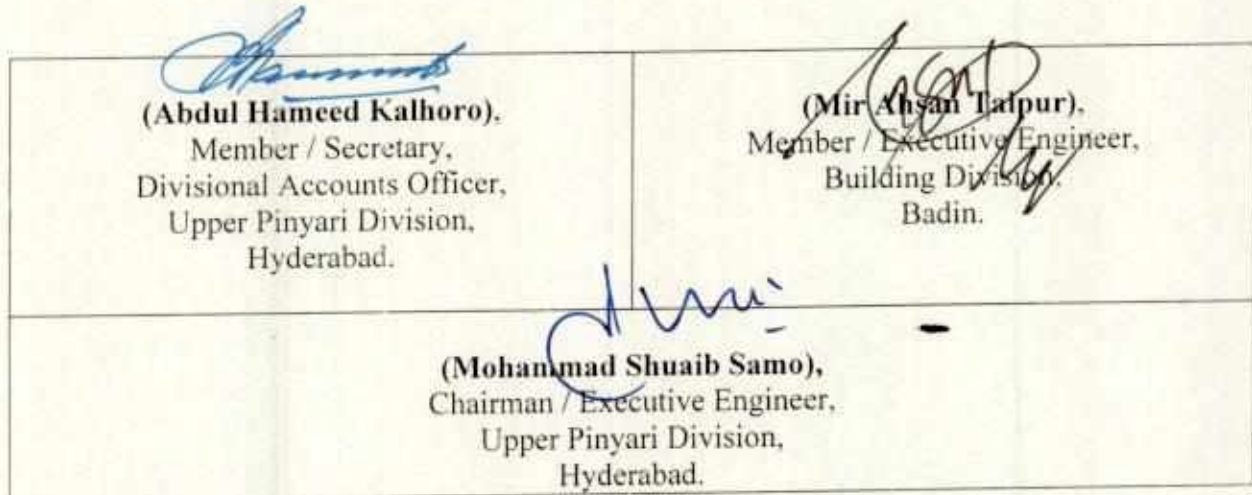 (Abdul Hameed Kalhoro),
Member / Secretary,
Divisional Accounts Officer,
Upper Pinyari Division,
Hyderabad.
(Mir Ahsan Talpur),
Member / Executive Engineer,
Building Division,
Badin.
(Mohammad Shuaib Samo),
Chairman / Executive Engineer,
Upper Pinyari Division,
Hyderabad.